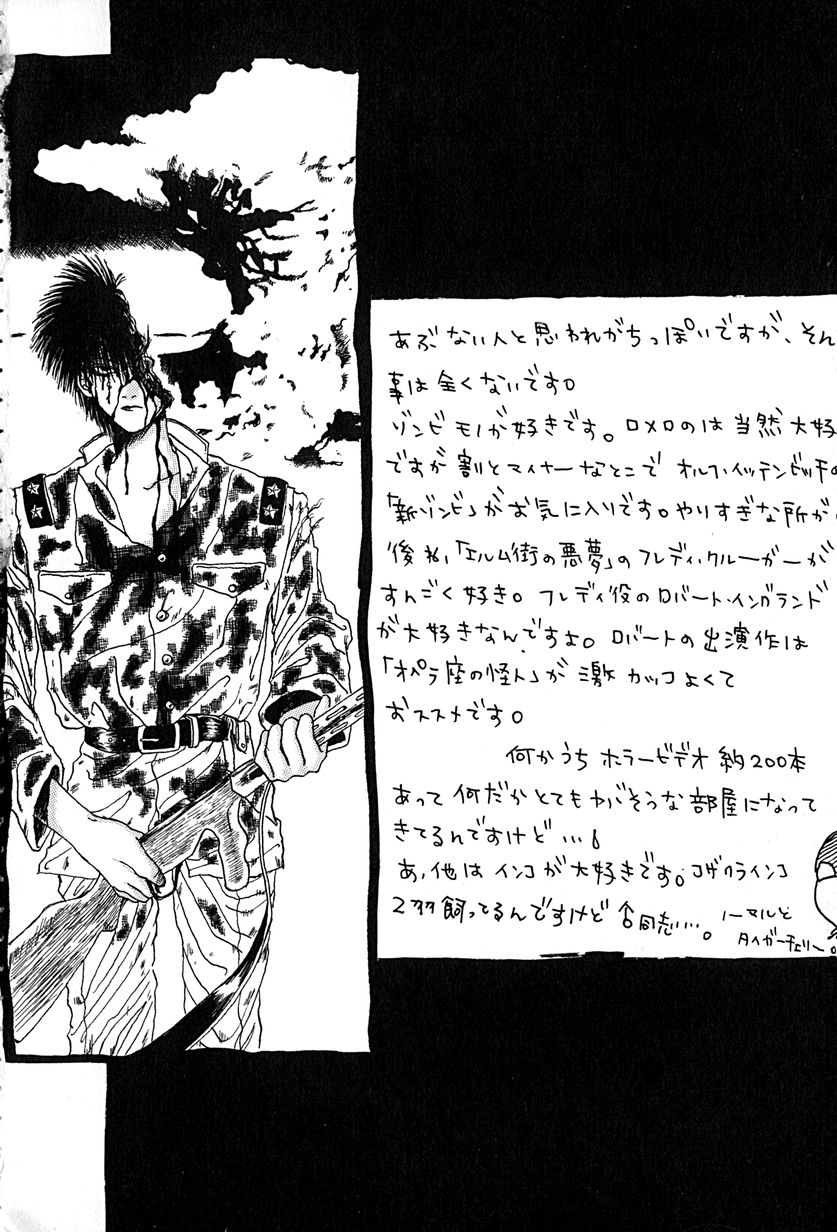 あぶない人と思われがちっぽいですが、そん
事は全くないです。
ゾンビモノが好きです。ロメロのは当然大好
ですが割とマイナーなとこで オルフ・イッテンビッチの
「新ゾンビ」がお気に入りです。やりすぎな所が
後ね、「エルム街の悪夢」のフレディ・クルーガーが
すんごく好き。フレディ役のロバート・イングランド
が大好きなんですよ。ロバートの出演作は
「オペラ座の怪人」が激カッコよくて
おススメです。
何かうちホラービデオ約200本
あって何だかとてもヤバそうな部屋になって
きてるんですけど…。
あ、他はインコが大好きです。コザクラインコ
2羽飼ってるんですけど 同志…。ノーマルと
タイガーチェリー。